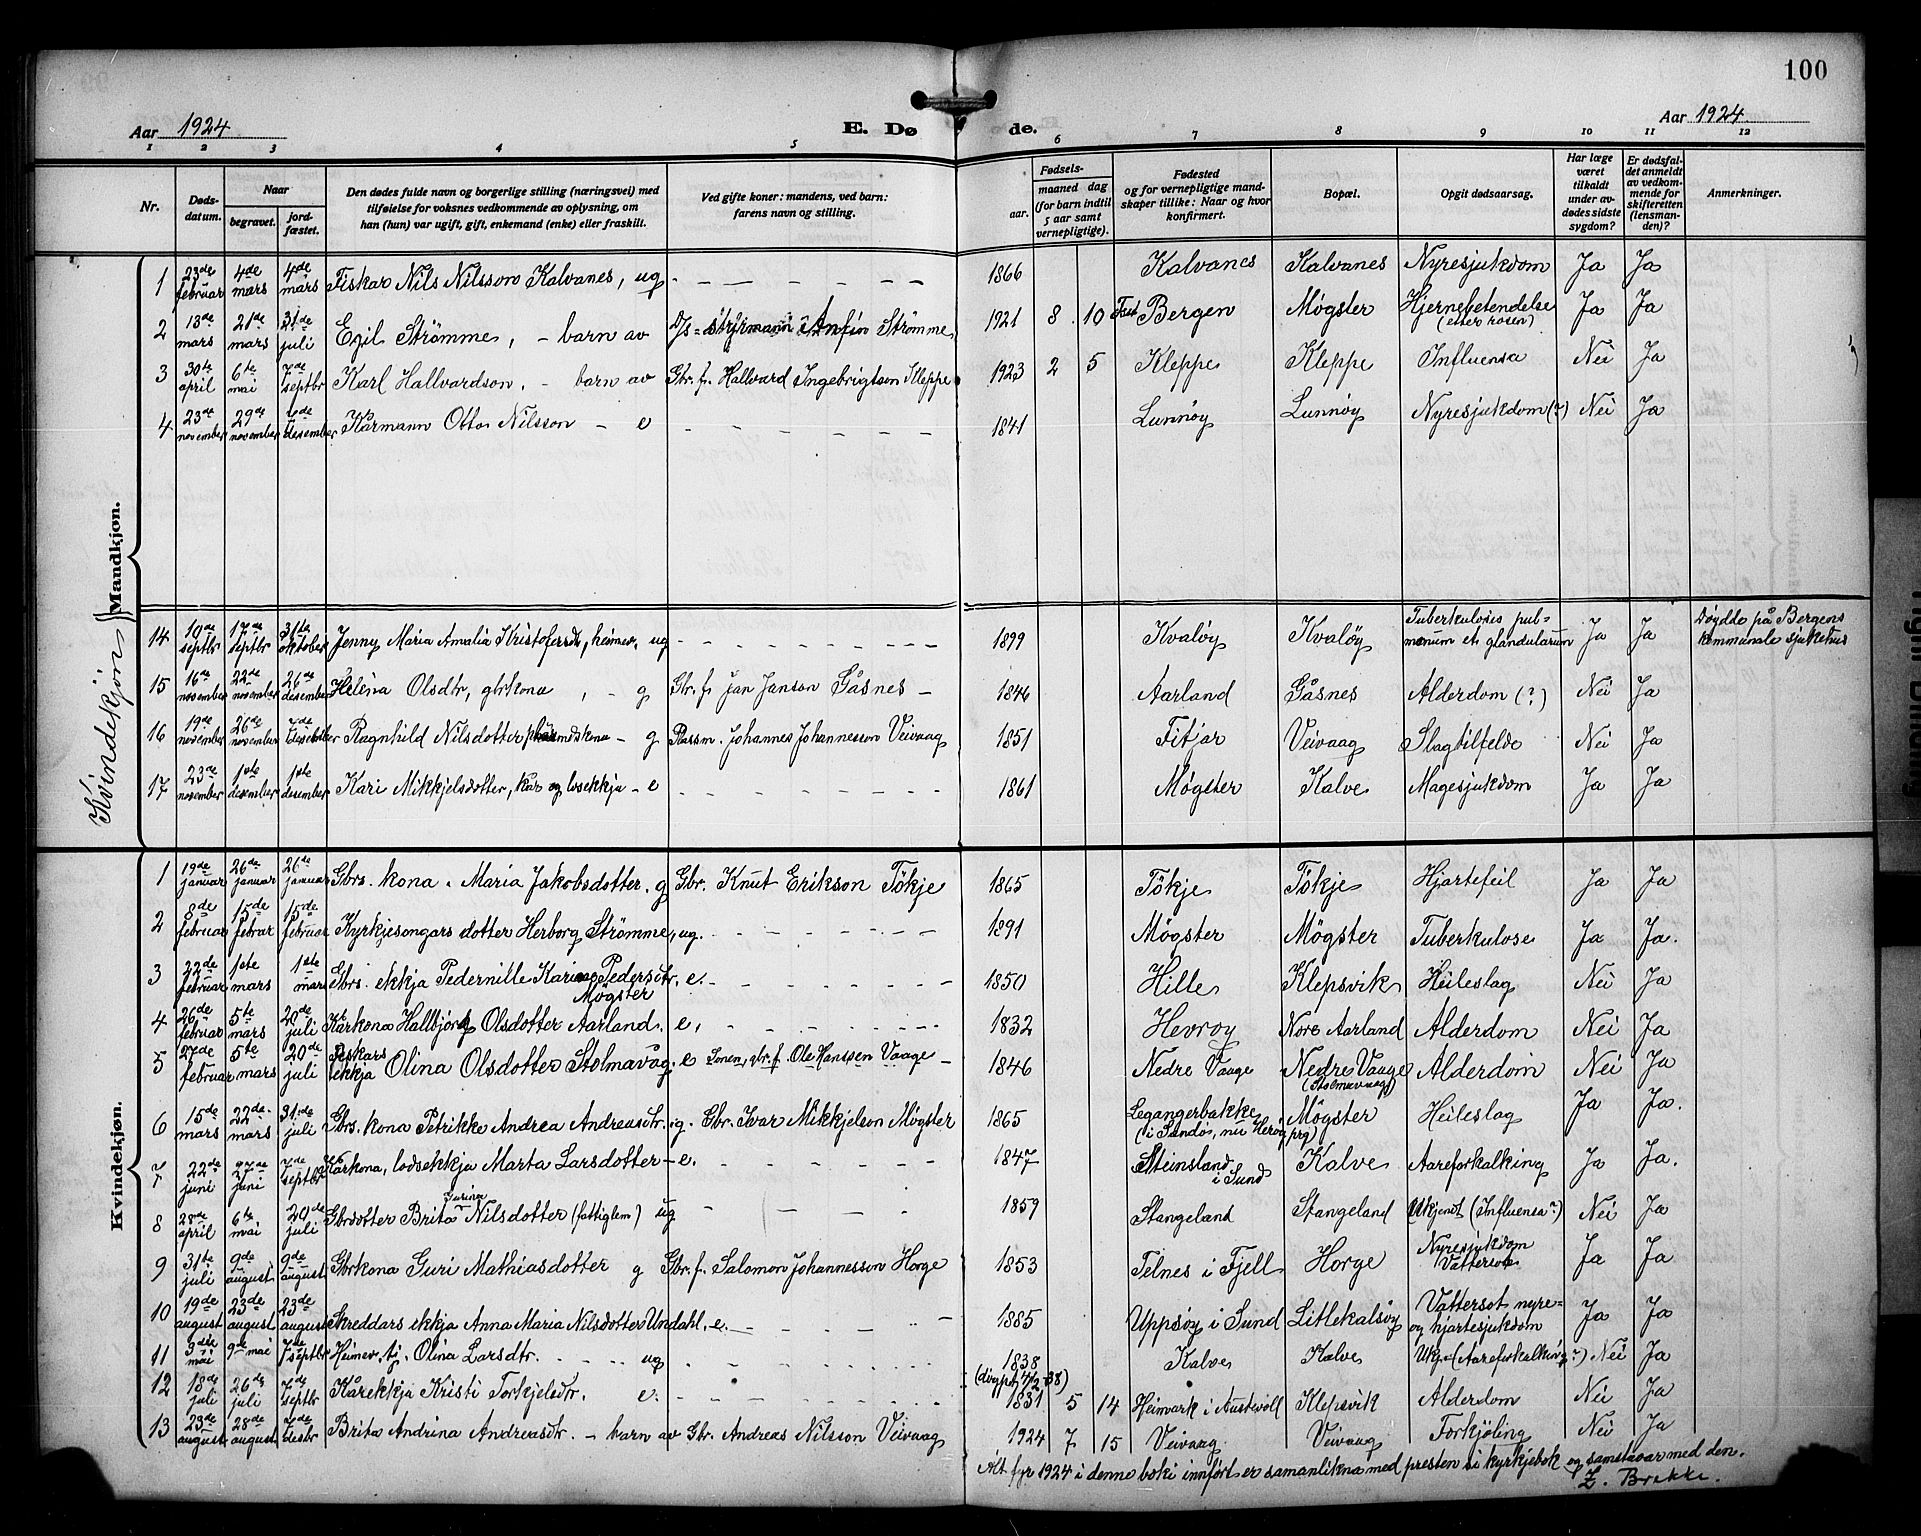 100
Aar 1924 E. Døde. Aar 1924.
1 2 3 4 5 6 7 8 9 10 11 12
Nr. Døds-datum. Naar begravet. jord-fæstet. Den dødes fulde navn og borgerlige stilling (næringsvei) med tilføielse for voksnes vedkommende av oplysning, om han (hun) var ugift, gift, enkemand (enke) eller fraskilt. Ved gifte koner: mandens, ved barn: farens navn og stilling. Fødsels- aar. maaned dag (for barn indtil 5 aar samt vernepligtige). Fødested og for vernepligtige mandskaper tillike: Naar og hvor konfirmert. Bopæl. Opgit dødsaarsag. Har læge været tilkaldt under avdødes sidste sygdom? Er dødsfaldet anmeldt av vedkommende for skifteretten (lensmanden)? Anmerkninger.
Mandkjøn.
1 23de februar 4de mars 4de mars Fiskar Nils Nilsson Kalvanes, ug 1866 Kalvanes Kalvanes Nyresjukdom Ja Ja
2 13de mars 21de mars 31te juli Egil Strømme, - barn av D/s- styrmann Anfin Strømme 1921 8 10 Bergen Møgster Hjernebetendelse (etter rosen) Ja Ja
3 30te april 6te mai 7de septbr Karl Hallvardson, - barn av Gbr. f. Hallvard Ingebrigtsen Kleppe 1923 2 5 Kleppe Kleppe Influensa Nei Ja
4 23de november 29de november 7de desember Kårmann Otto Nilsson - e 1841 Lunnøy Lunnøy Nyresjukdom (?) Nei Ja
Kvindekjøn
14 10de septbr 17de septbr 31te oktober Jenny Maria Amalia Kristofersdtr, heimev, ug 1899 Kvaløy Kvaløy Tuberkulosis pulmonum et glandularum Ja Ja Døydde på Bergens kommunale sjukehus
15 16de november 22de november 26de desember Helena Olsdtr, gbrkona, - g Gbr. f. Jan Janson Gåsnes - 1846 Aarland Gåsnes Alderdom (?) Nei Ja
16 19de november 26de november 7de desember Ragnhild Nilsdotter - g Plassm. Johannes Johannesson Veivaag 1851 Fitjar Veivaag Slagtilfelde Nei Ja
17 23de november 1ste desember 1ste desember Kari Mikkjelsdotter, kår og losekkja - e 1861 Møgster Kalve Magesjukdom Ja Ja
Kvindekjøn.
1 19de januar 26de januar 26de januar Gbrs. kona. Maria Jakobsdotter. g Gbr. Knut Erikson Tökje 1865 Tökje Tökje Hjartefeil Ja Ja
2 8de februar 15de februar 15de februar Kyrkjesongars dotter Herborg Strømme, ug. 1891 Møgster Møgster Tuberkulose Ja Ja.
3 22de februar 1ste mars 1ste mars Gbrs. ekkja Pedernille Karine Pedersdtr. e. Møgster 1850 Hille Klepsvik Heileslag Nei Ja
4 26de februar 5te mars 20de juli Kårkona Hallbjørg Olsdotter Aarland. e, 1832 Hevrøy Nore Aarland Alderdom Nei Ja
5 27de februar 5te mars 20de juli Fiskars ekkja Olina Olsdotter Stolmavåg, e Sonen, gbr. f. Ole Hanssen Vaage - 1846 Nedre Vaage Nedre Vaage (Stolmavaag) Alderdom Nei Ja
6 15de mars 22de mars 31te juli Gbrs. kona Petrikke Andrea Andreasdtr. g. Gbr. Ivar Mikkjelson Møgster 1865 Legangerbakke (i Sandö, nu Herøy prg) Møgster Heileslag Ja Ja.
7 22de juni 27de juni 7de septbr Kårkona, losekkja Marta Larsdotter - e. 1847 Steinsland i Sund Kalve Aareforkalking Ja Ja.
8 28de april 6te mai 20de juli Gbrdotter Brita Jurina Nilsdotter (fattiglem) ug 1859 Stangeland Stangeland Ukjent (Influensa?) Nei Ja
9 31te juli 9de august 9de august Gbrkona Guri Mathiasdotter g Gbr. f. Salomon Johannesson Horge 1853 Telnes i Fjell Horge Nyresjukdom Vattersot Ja Ja
10 19de august 23de august 23de august Skreddars ekkja Anna Maria Nilsdotter Undahl, e. 1885 Uppsøy i Sund Litlekalsøy Vattersot nyre- og hjartesjukdom Ja Ja
11 3dje mai 9de mai 7de septbr Heimev. Olina Larsdtr. ug 1838 (døypt 4/2-38) Kalve Kalve Ukj. (Aareforkalking?) Nei Ja
12 18de juli 26de juli 7de septbr Kårekkja Kristi Torkjelsdtr. e. 1831 5 14 Heimark i Austevoll Klepsvik Alderdom Nei Ja
13 23de august 28de august 7de septbr Brita Andrina Andreasdtr. - barn av Gbr. Andreas Nilsson Veivaag 1924 7 15 Veivaag Veivaag Forkjøling Nei Ja
Alt fyr 1924 i denne boki innført er samanlikna med presten si kyrkjebok og samsvarar med den.
Z. Brekke.